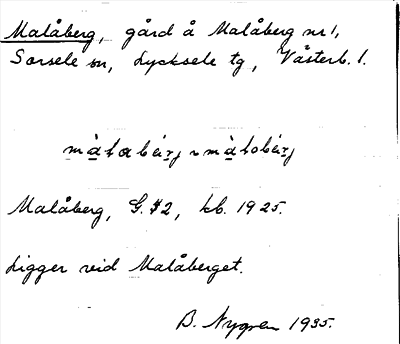 Malåberg, gård å Malåberg nr 1,
Sorsele sn, Lycksele tg, Västerb. l.
Malåberg, G. 42, kb. 1925.
Ligger vid Malåberget.
B. Nygren 1935.